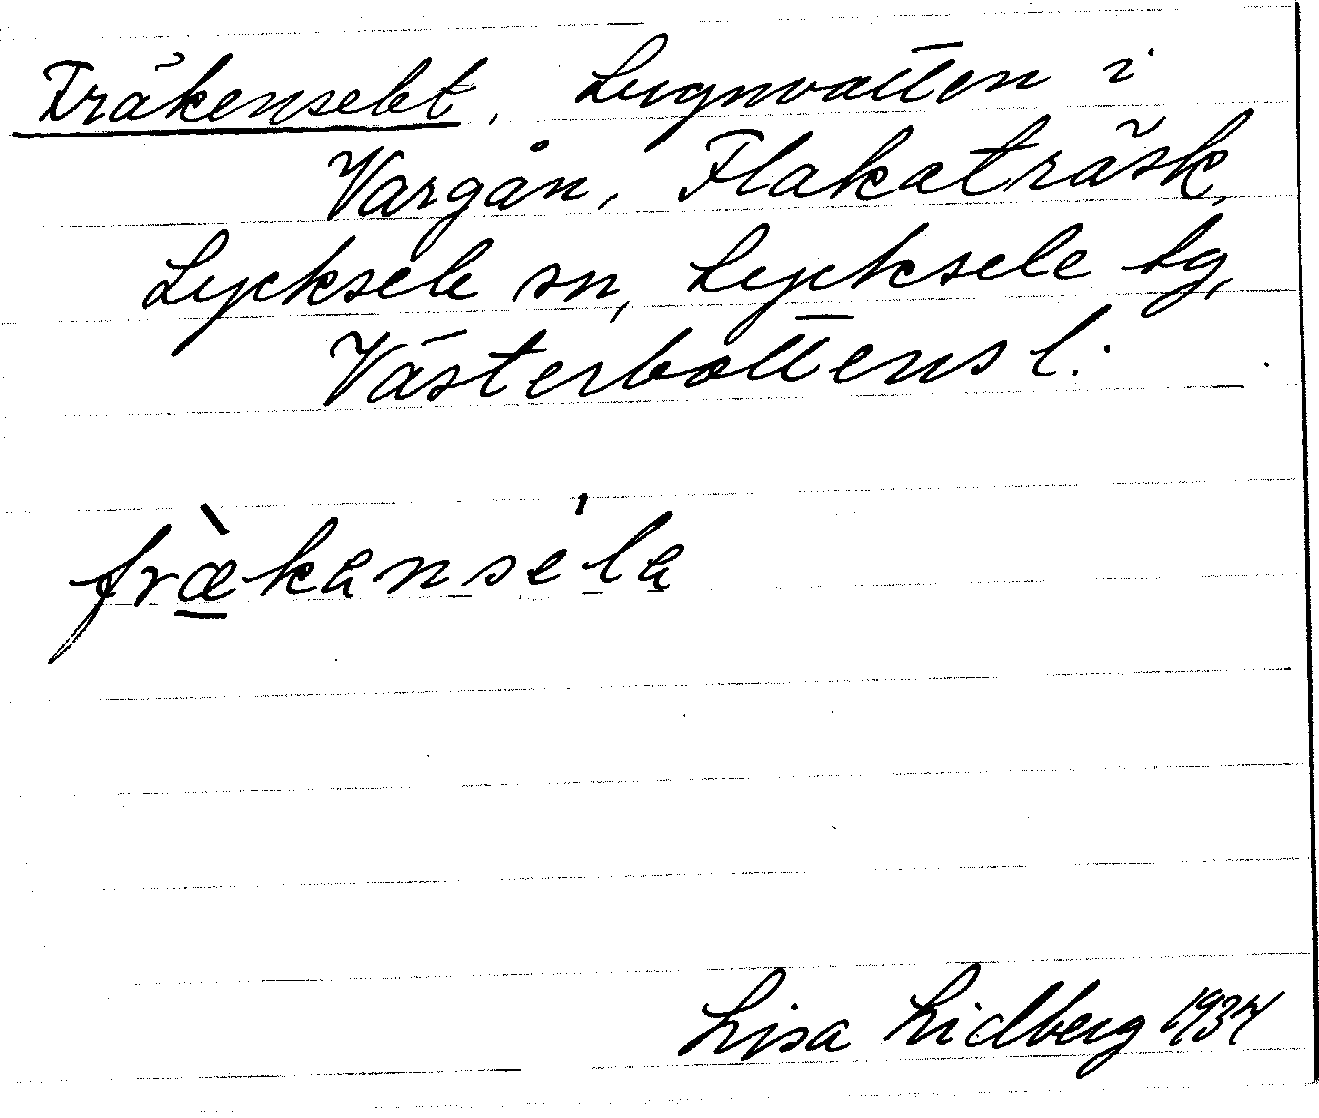 Fräkenselet, Lugnvatten i
Vargån, Flakaträsk,
Lycksele sn, Lycksele lg,
Västerbottens l.
fræ̀kansela
Lisa Lidberg 1937